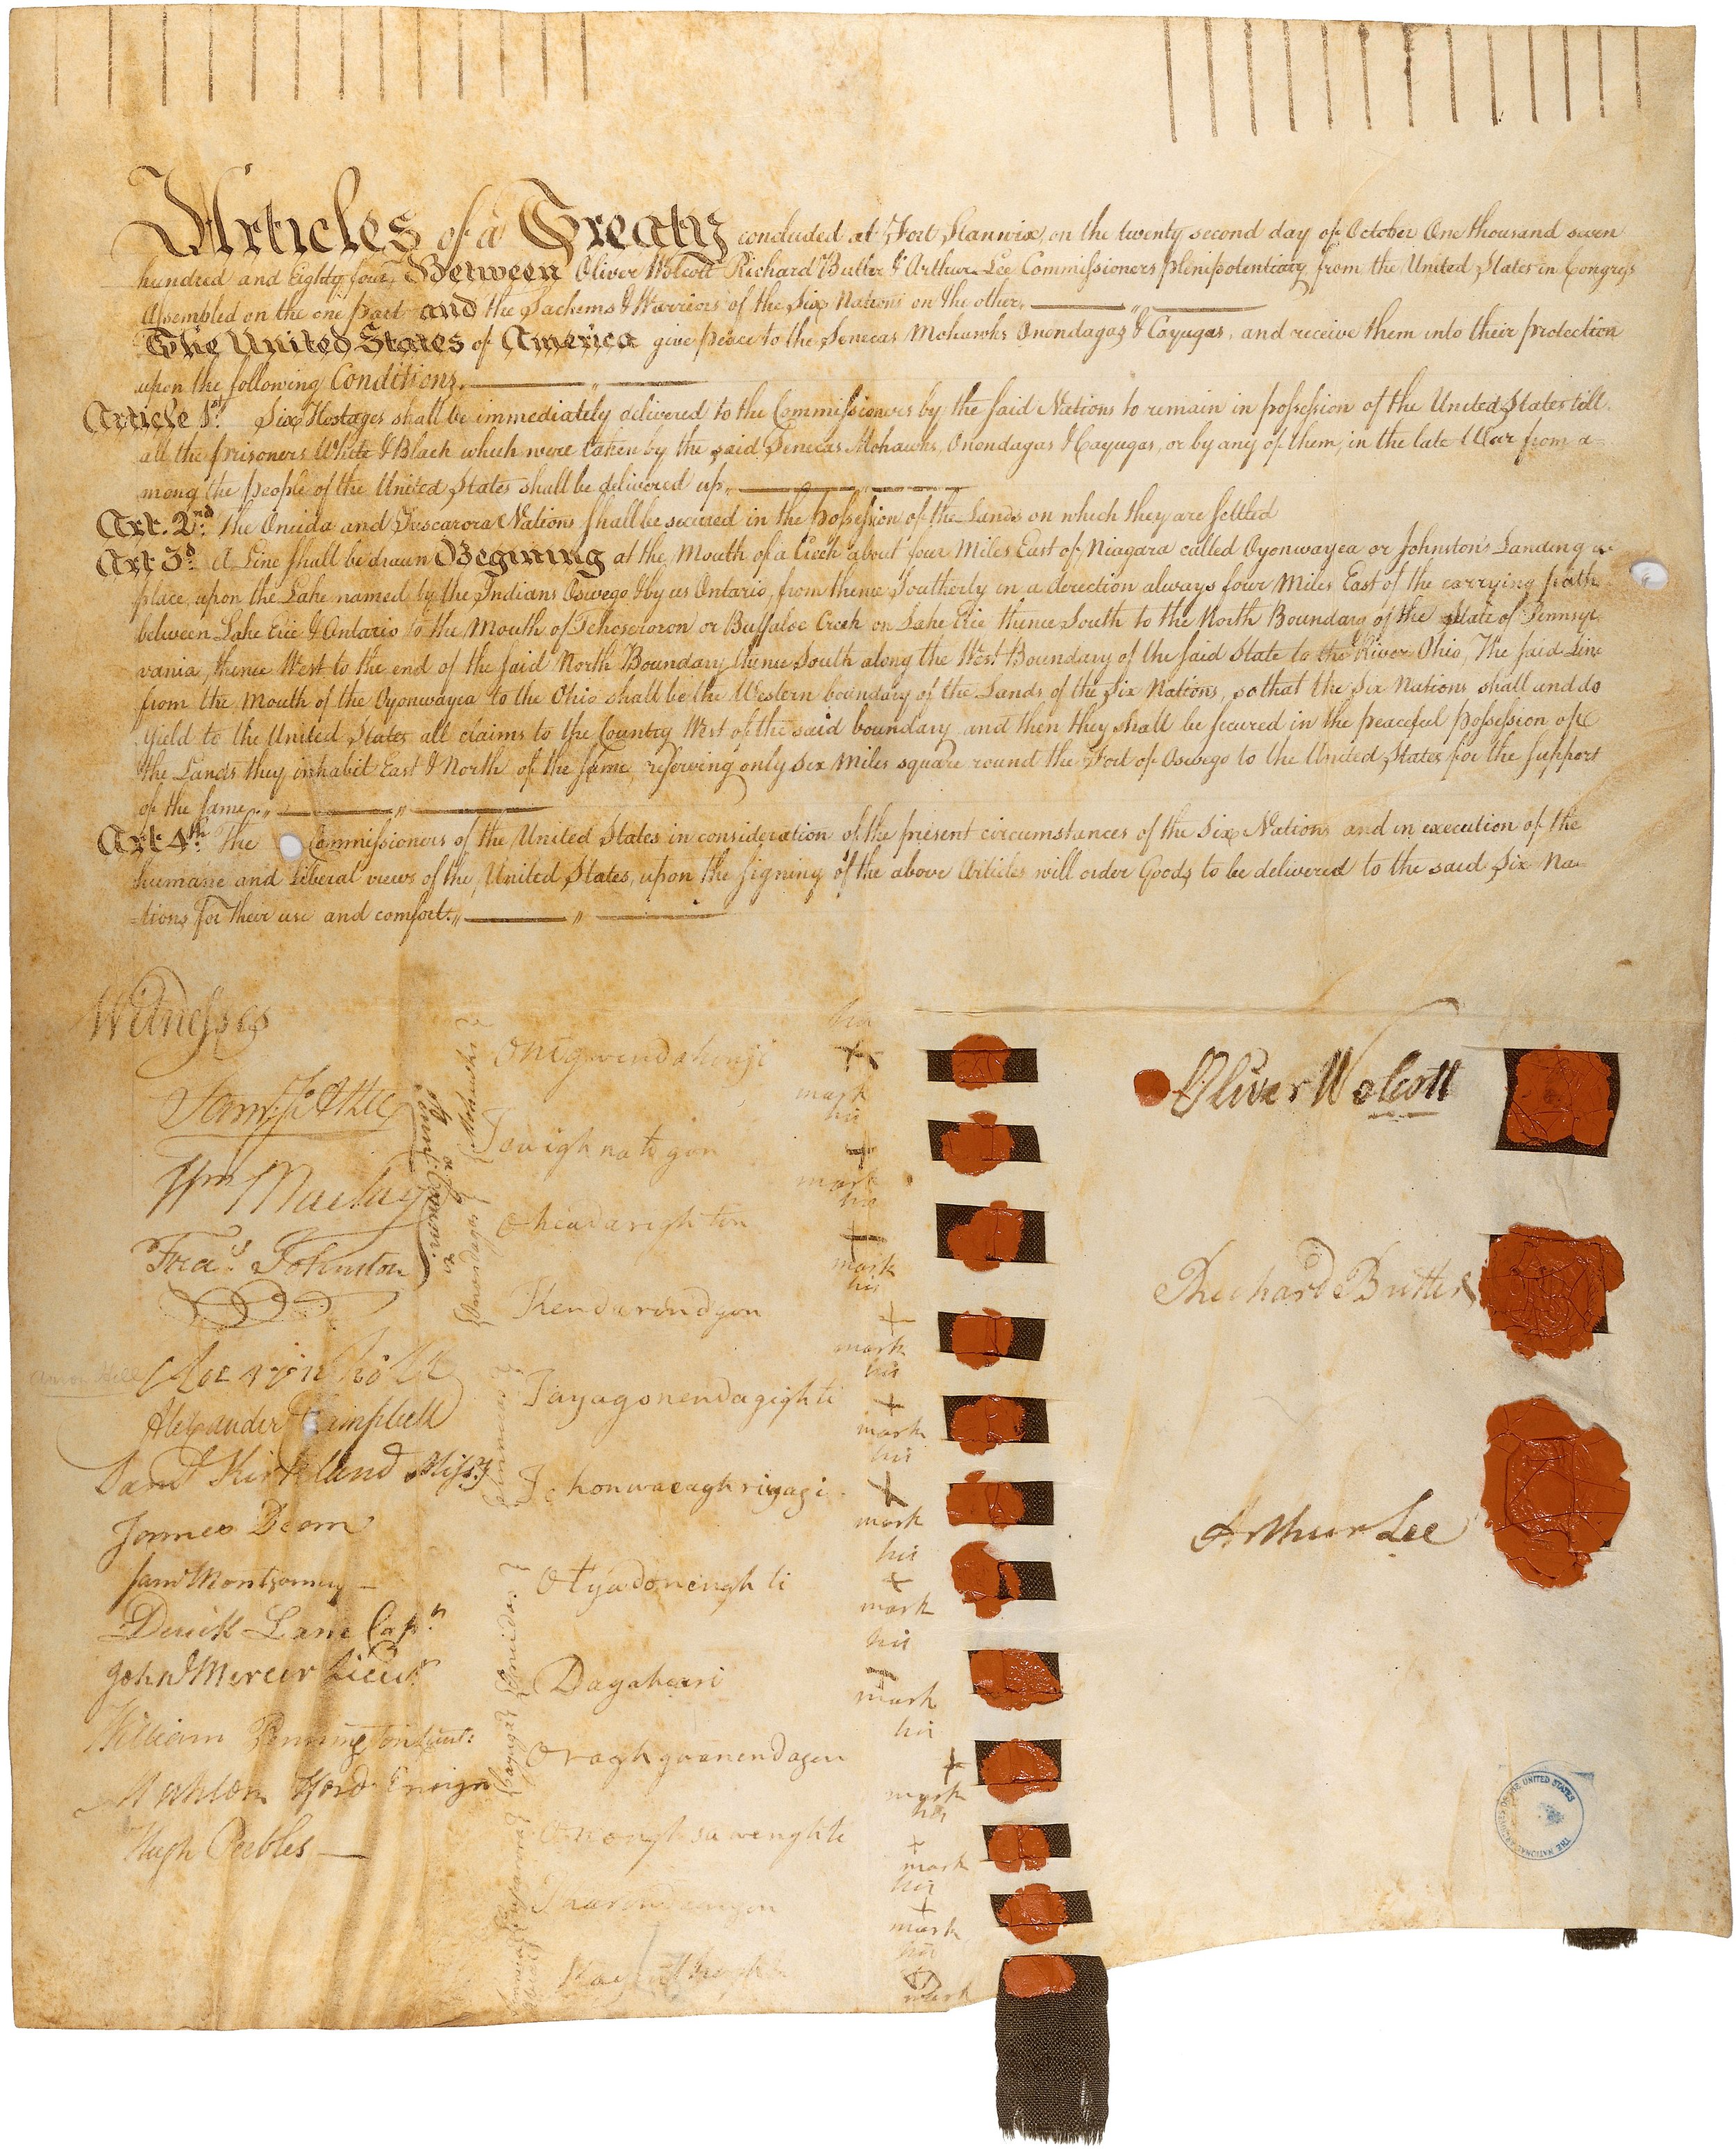 Articles of a Treaty concluded at Fort Stanwix, on the twenty second day of October One thousand seven
hundred and Eighty four, Between Oliver Wolcott Richard Butler & Arthur Lee Commissioners plenipotentiary from the United States in Congress
Assembled on the one Part and the Sachems & Warriors of the Six Nations on the other.
The United States of America give peace to the Senecas Mohawks Onondagas & Cayugas, and receive them into their protection
upon the following Conditions.
Article 1st. Six Hostages shall be immediately delivered to the Commissioners by the said Nations to remain in possession of the United States till
all the prisoners White & Black which were taken by the said Senecas Mohawks, Onondagas & Cayugas, or by any of them, in the late War from a-
mong the people of the United States shall be delivered up.
Art. 2nd. The Oneida and Tuscarora Nations shall be secured in the Possession of the Lands on which they are settled
Art 3d. A Line shall be drawn Begining at the Mouth of a Creek about four Miles East of Niagara called Oyonwayea or Johnston Landing
place, upon the Lake named by the Indians Oswego & by us Ontario, from thence Southerly in a direction always four Miles East of the carrying path
between Lake Erie & Ontario to the Mouth of Tehoseroron or Buffaloe Creek on Lake Erie thence South to the North Boundary of the State of Pennsyl
vania, thence West to the end of the said North Boundary, thence South along the West Boundary of the said State to the River Ohio, The said Line
from the Mouth of the Oyonwayea to the Ohio shall be the Western boundary of the Lands of the Six Nations, so that the Six Nations shall and do
yield to the United States all claims to the Country West of the said boundary and then they shall be secured in the peaceful possession of
the Lands they inhabit East & North of the same, reserving only six miles square round the Fort of Oswego to the United States for the support
of the same.
Art 4th The Commissioners of the United States in consideration of the present circumstances of the Six Nations and in execution of the
humane and liberal views of the United States, upon the signing of the above Articles will order Goods to be delivered to the said Six Na-
-tions for their use and comfort.
Witnesses
Saml. J. Atlee
Wm Maclay
Fras. Johnston
Penn: Commrs.
Aaron Hill
Alexander Campbell
Saml Kirkland Missy
James Dean
Saml Montgomery
Derick Lane Capn
John Mercer Lieut.
William Pennington Lieut:
Mahlon Hord Ensign
Hugh Peebles
Mohawks
Onigwendahonji his mark
Towighnatogon his mark
Onondagas
Oheadarighton his mark
Kendarindgon his mark
Senecas
Tayagonendagighti his mark
Tehonwaeaghriyagi his mark
Oneidas
Otyadonenghti his mark
Dagaheari his mark
Cayuga
Oraghgoanendagen his mark
his mark
Tuscarora
his mark
his mark
Oliver Wolcott
Richard Butler
Arthur Lee
THE NATIONAL ARCHIVES OF THE UNITED STATES